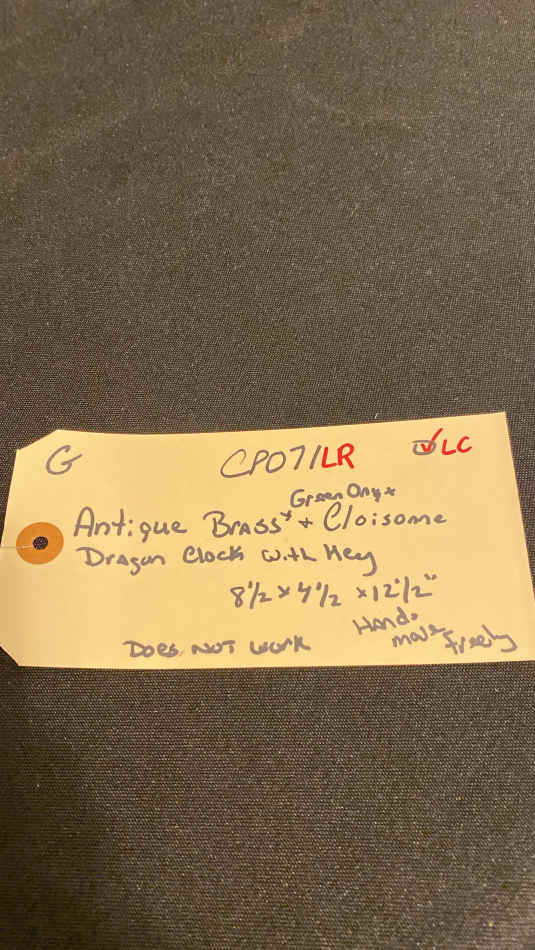 G CP071LR ✓LC
Green Onyx
Antique Brass + Cloisome
Dragon Clock with Key
8 1/2 x 4 1/2 x 12 1/2"
Does Not Work Hands
move freely